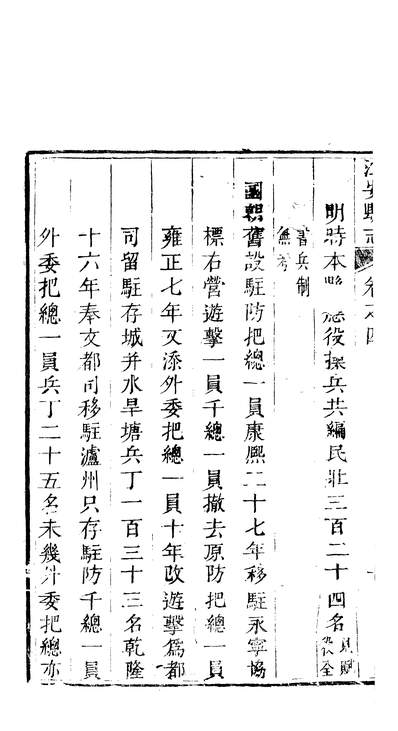 江安縣志 卷之四
明時本 役操兵共編民壯三百二十四名 見賦役全
書兵制無考
國朝舊設駐防把總一員康熙二十七年移駐永寧協
標右營遊擊一員千總一員撤去原防把總一員
雍正七年又添外委把總一員十年改遊擊爲都
司留駐存城并水旱塘兵丁一百三十三名乾隆
十六年奉文都司移駐瀘州只存駐防千總一員
外委把總一員兵丁二十五名未幾外委把總亦